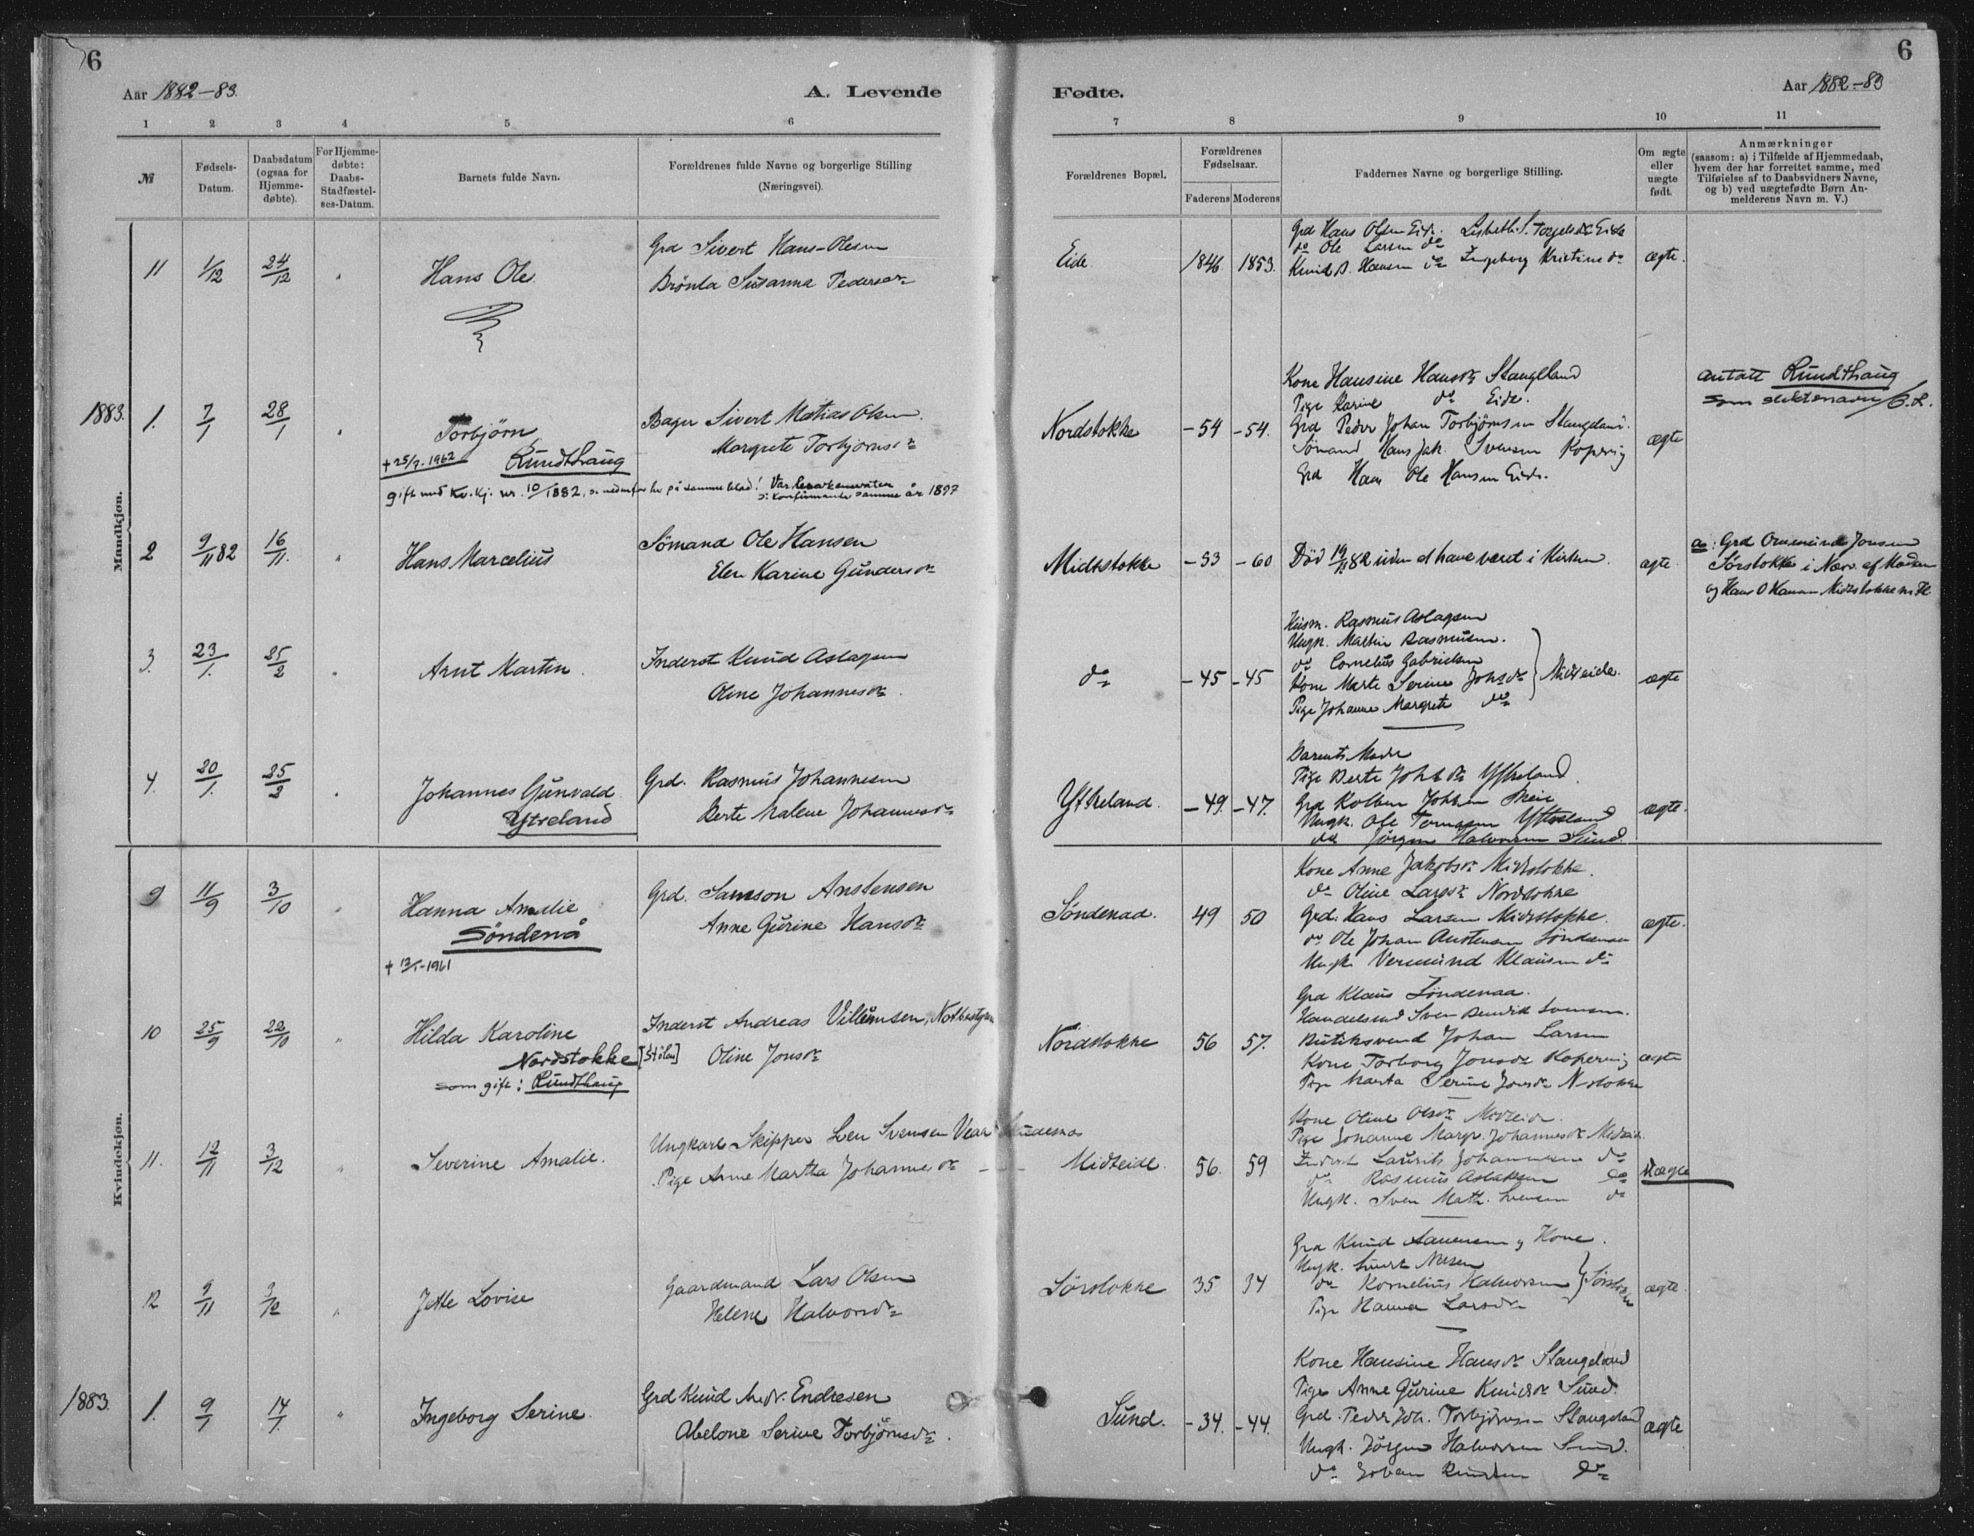 6
6
Aar 1882-83.
A. Levende
Fødte.
Aar 1882-83
1 2 3 4 5 6
7 8 9 10 11
№
Fødsels-
Datum.
Daabsdatum
(ogsaa for
Hjemme-
døbte).
For Hjemme-
døbte:
Daabs-
Stadfæstel-
ses-Datum.
Barnets fulde Navn.
Forældrenes fulde Navne og borgerlige Stilling
(Næringsvei).
Forældrenes Bopæl.
Forældrenes
Fødselsaar.
Faderens Moderens
Faddernes Navne og borgerlige Stilling.
Om ægte
eller
uægte
født.
Anmærkninger
(saasom: a) i Tilfælde af Hjemmedaab,
hvem der har forrettet samme, med
Tilføielse af to Daabsvidners Navne,
og b) ved uægtefødte Børn An-
melderens Navn m. V.)
Mandkjøn.
11 1/12 24/12 " Hans Ole
Grd Sivert Hans-Olesen
Brønla Susanna Pedersdr
Eide 1846 1853.
Grd Hans Olsen Eide. Lisbeth S. Torgelsdr Eide
do Ole Larsen do
Knud B. Hansen do Ingeborg Kristine do
ægte.
1883. 1. 7/1 28/1 " Torbjørn
+ 25/9. 1962 Rundthaug
gift med Kv. kj. nr. 10/1882, se nedenfor her på samme blad!
konfirmante samme år 1897
Bager Sivert Matias Olsen
Margrete Torbjørnsdr
Nordstokke -54 -54.
Kone Hansine Hansdr Stangeland
Pige Karine do Eide.
Grd Peder Johan Torbjørnsen Stangeland
Sømand Hans Jak. Svensen Kopervig
Grd Hans Ole Hansen Eide.
ægte
antatt Rundthaug
som slektsnavn
2 9/11 82 16/11. " Hans Marcelius
Sømand Ole Hansen
Elen Karine Gundersdr
Midtstokke -53 -60
Død 19/11 82 uden at have været i Kirken.
ægte.
a: Grd Ommund Jonsen
Sørstokke i Nærv. af Moderen
og Hans O Hansen Midtstokke
3. 23/1. 25/2 " Arnt Martin
Inderst Knud Aslagsen
Oline Johannesdr.
do -45 -45
Husm. Rasmus Aslagsen
Ungk. Martin Rasmussen.
do Cornelius Gabrielsen
Kone Marte Serine Johsdr
Pige Johanne Margrete do
Midteide.
ægte
4. 20/1. 25/2 " Johannes Gunvald
Ytreland
Grd. Rasmus Johannesen
Berte Malene Johannesdr
Yttreland. -49. -47.
Barnets Moder
Pige Berte Johsdr Yttreland.
Grd Kolben Johsen
Ungk. Ole Tomassen Yttreland
do Jørgen Halvorsen Sund.
ægte.
Kvindekjøn.
9 11/9 3/10 " Hanna Amalie
Søndenå
+ 13/1-1961
Grd. Samson Anstensen
Anne Gurine Hansdr
Søndenaa. 49 50
Kone Anne Jakobsdr Midtstokke.
do Oline Larsdr Nordstokke
Grd. Hans Larsen Midtstokke.
do Ole Johan Austensen Søndenaa
Ungk Vermund Klausen do
ægte.
10 25/9 22/10 " Hilda Karoline
Nordstokke [Stølen]
som gift: Rundthaug
Inderst Andreas Villumsen,
Oline Jonsdr
Nordstokke 56 57.
Grd Klaus Søndenaa.
Handelsmd Sven Bendik Svensen.
Butiksvend Johan Larsen
Kone Torborg Jonsdr Kopervig
Pige Marta Serine Jonsdr N-stokke
ægte
11. 12/11 3/12 " Severine Amalie.
Ungkarl Skipper Svensen Skudenes
Pige Anne Martha Johannesdr
Midteide. 56. 59
Kone Oline Olsdr Midteide.
Pige Johanne Margr. Johannesdr Midteide
Inderst Laurits Johannesen do
do Rasmus Aslaksen do
Ungk. Sven Math. Svensen do
Uægte
12 9/11 3/12 " Jette Lovise
Gaardmand Lars Olsen
Helene Halvorsdr
Sørstokke 35 34
Grd Knud Aanensen og Kone.
Ungk. Sivert Nilsen
do Kornelius Halvorsen
Pige Hanna Larsdr
Sørstokke
ægte.
1883. 1. 9/1 14/1. " Ingeborg Serine.
Grd Knud Endresen
Abelone Serine Torbjørnsdr.
Sund. -34. -44.
Kone Hansine Hansdr Stangeland
Pige Anne Gurine Knudsdr Sund.
Grd. Peder Joh. Torbjørnsen Stangeland
Ungk. Jørgen Halvorsen Sund.
do Johan Knudsen do
ægte